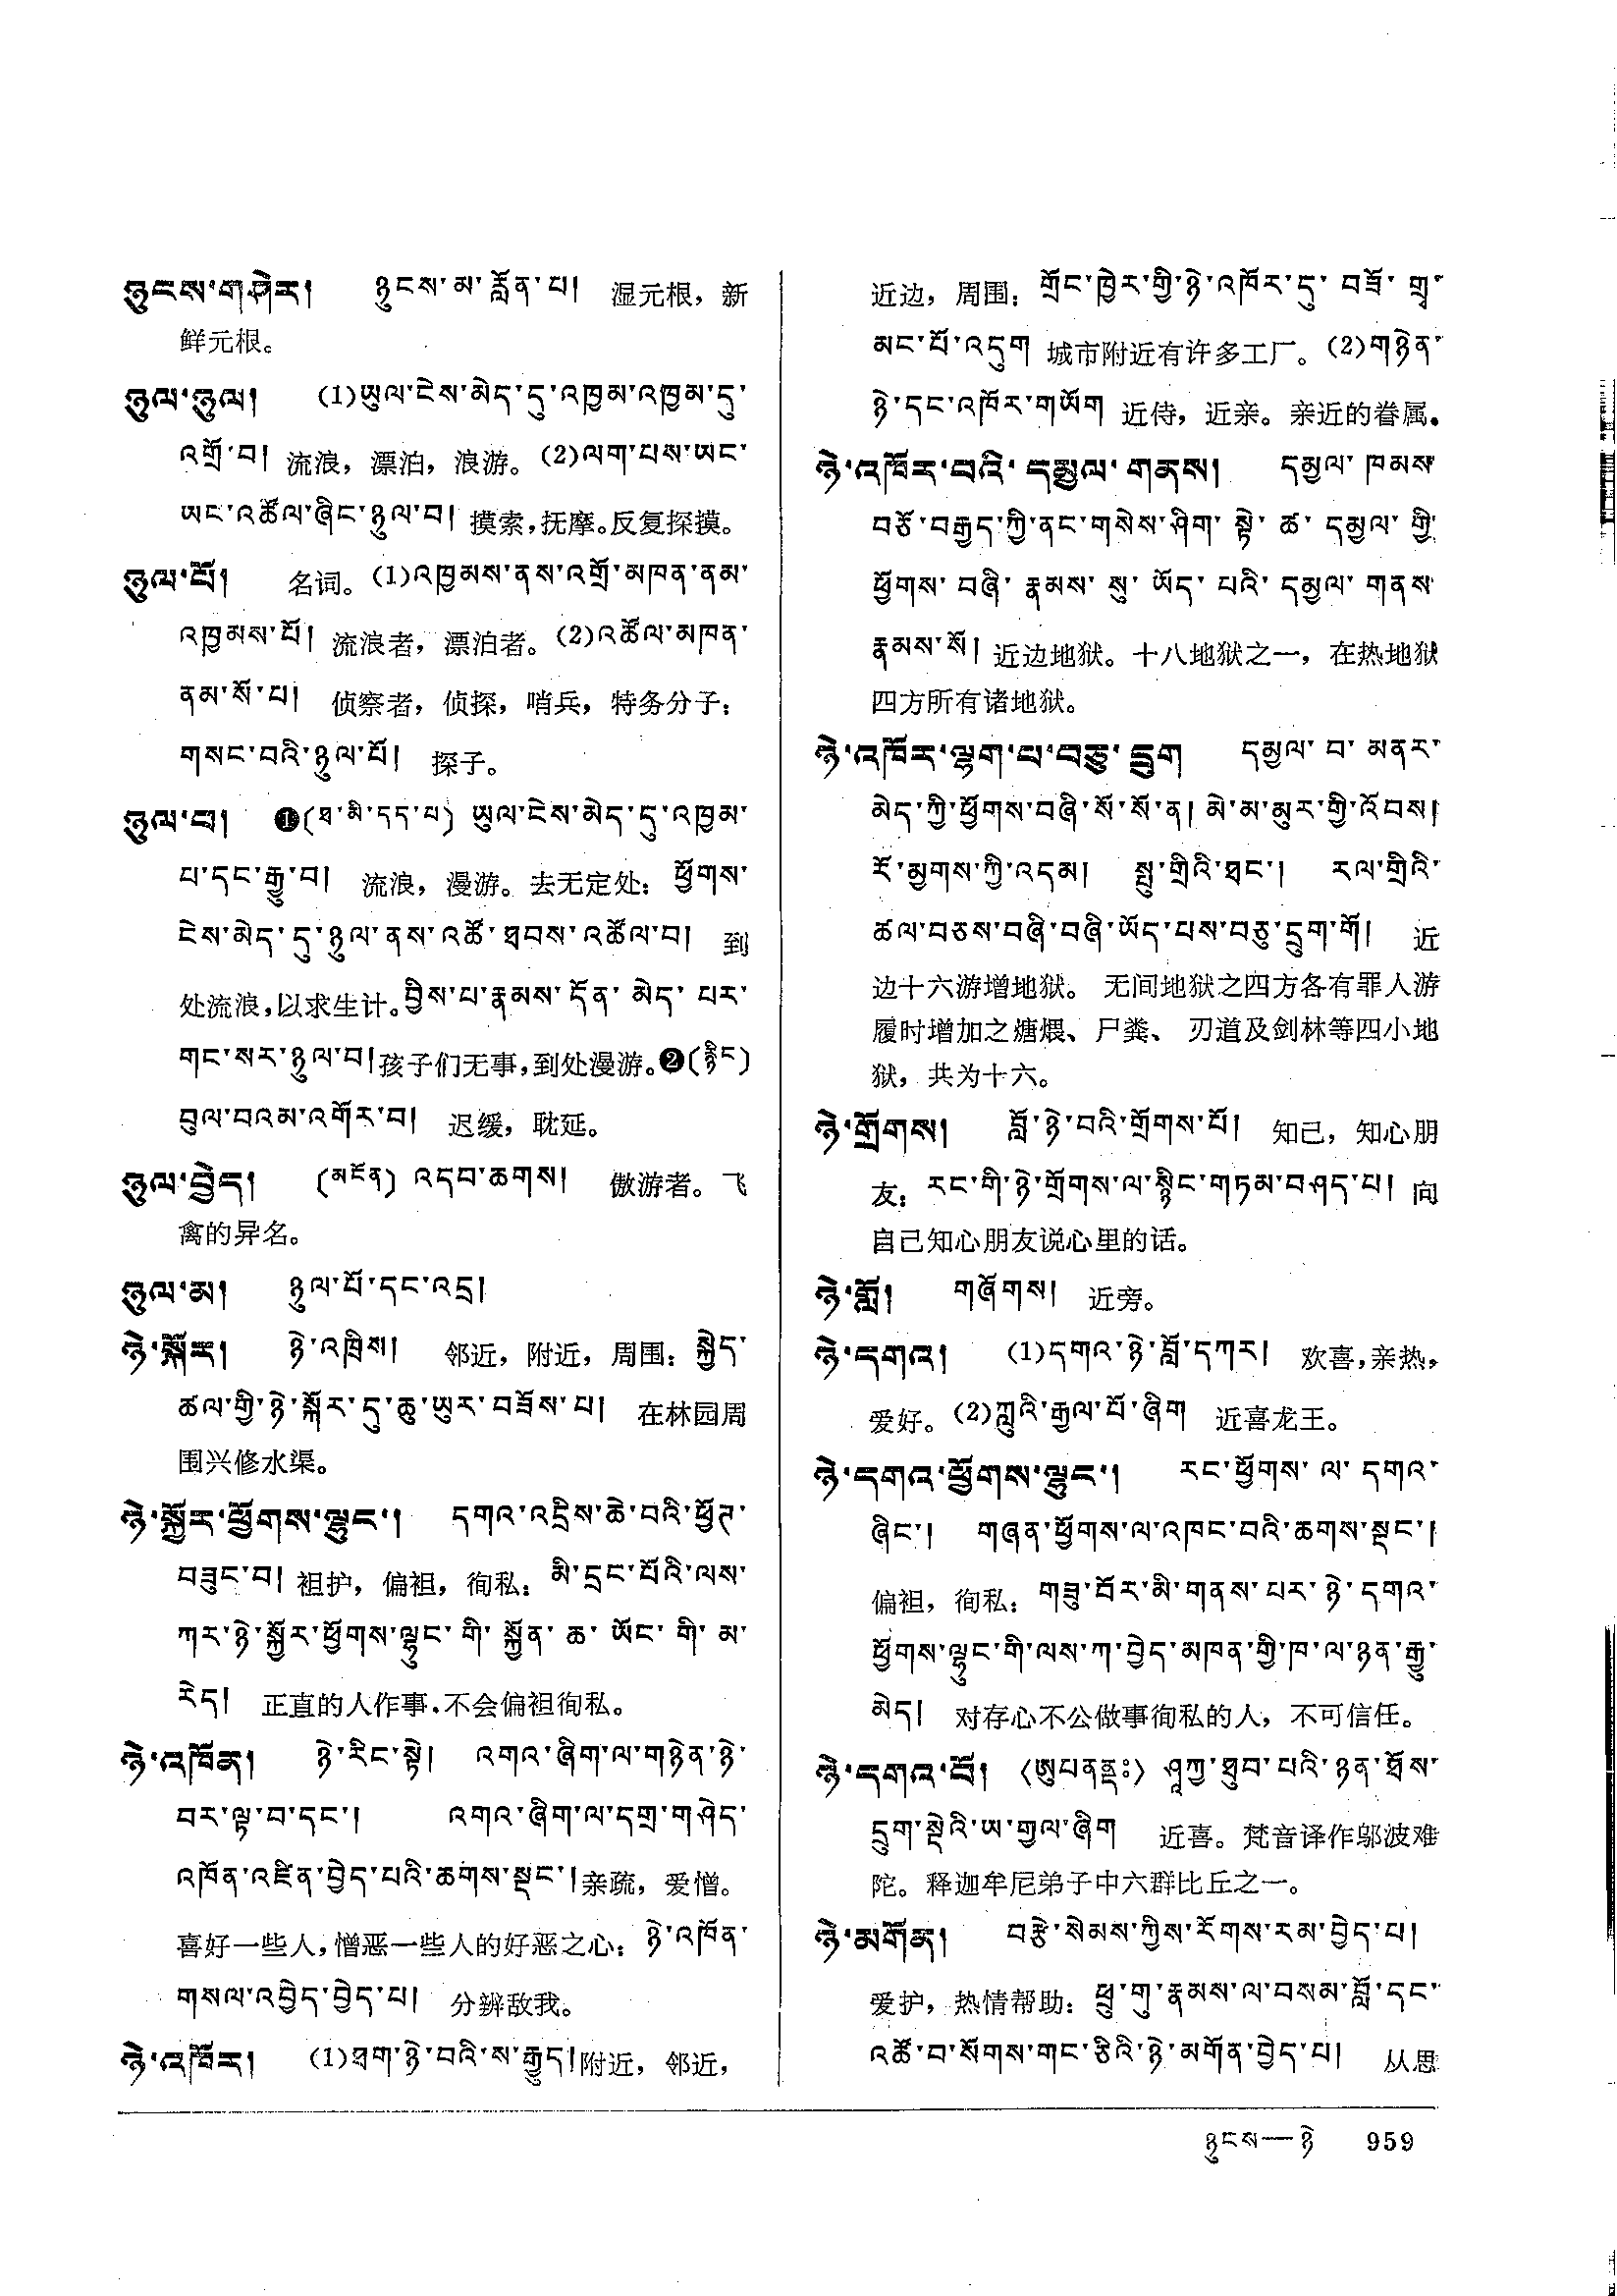 ཉུངས་གཤེར། ཉུངས་མ་རློན་པ། 湿元根，新
鲜元根。
ཉུལ་ཉུལ། (1)ཡུལ་ངེས་མེད་དུ་འཁྱམ་འཁྱམ་དུ་
འགྲོ་བ། 流浪，漂泊，浪游。(2)ལག་པས་ཡང་
ཡང་འཚོལ་ཞིང་ཉུལ་བ། 摸索，抚摩。反复探摸。
ཉུལ་པོ། 名词。(1)འཁྱམས་ནས་འགྲོ་མཁན་ནམ་
འཁྱམས་པོ། 流浪者，漂泊者。(2)འཚོལ་མཁན་
ནམ་སོ་པ། 侦察者，侦探，哨兵，特务分子：
གསང་བའི་ཉུལ་པོ། 探子。
ཉུལ་བ། ❶(ཐ་མི་དད་པ) ཡུལ་ངེས་མེད་དུ་འཁྱམ་
པ་དང་རྒྱུ་བ། 流浪，漫游。去无定处：ཕྱོགས་
ངེས་མེད་དུ་ཉུལ་ནས་འཚོ་ཐབས་འཚོལ་བ། 到
处流浪，以求生计。བྱིས་པ་རྣམས་དོན་མེད་པར་
གང་སར་ཉུལ་བ།孩子们无事，到处漫游。❷(རྙིང)
བུལ་བའམ་འགོར་བ། 迟缓，耽延。
ཉུལ་བྱེད། (མངོན) འདབ་ཆགས། 傲游者。飞
禽的异名。
ཉུལ་མ། ཉུལ་པོ་དང་འདྲ།
ཉེ་སྐོར། ཉེ་འཁྲིས། 邻近，附近，周围：སྐྱེད་
ཚལ་གྱི་ཉེ་སྐོར་དུ་ཆུ་ཡུར་བཟོས་པ། 在林园周
围兴修水渠。
ཉེ་སྐྱོར་ཕྱོགས་ལྷུང་། དགའ་འདྲིས་ཆེ་བའི་ཕྱོཊ་
བཟུང་བ། 袒护，偏袒，徇私：མི་དྲང་པོའི་ལས་
ཀར་ཉེ་སྐྱོར་ཕྱོགས་ལྷུང་གི་སྐྱོན་ཆ་ཡོང་གི་མ་
རེད། 正直的人作事，不会偏袒徇私。
ཉེ་འཁོན། ཉེ་རིང་སྟེ། འགའ་ཞིག་ལ་གཉེན་ཉེ་
བར་ལྟ་བ་དང་། འགའ་ཞིག་ལ་དགྲ་གཤེད་
འཁོན་འཛིན་བྱེད་པའི་ཆགས་སྡང་།亲疏，爱憎。
喜好一些人，憎恶一些人的好恶之心：ཉེ་འཁོན་
གསལ་འབྱེད་བྱེད་པ། 分辨敌我。
ཉེ་འཁོར། (1)ཐག་ཉེ་བའི་ས་རྒྱུད།附近，邻近，
近边，周围：གྲོང་ཁྱེར་གྱི་ཉེ་འཁོར་དུ་བཟོ་གྲྭ་
མང་པོ་འདུག 城市附近有许多工厂。(2)གཉེན་
ཉེ་དང་འཁོར་གཡོག 近侍，近亲。亲近的眷属。
ཉེ་འཁོར་བའི་དམྱལ་གནས། དམྱལ་ཁམས་
བཅོ་བརྒྱད་ཀྱི་ནང་གསེས་ཤིག་སྟེ་ཚ་དམྱལ་གྱི་
ཕྱོགས་བཞི་རྣམས་སུ་ཡོད་པའི་དམྱལ་གནས་
རྣམས་སོ། 近边地狱。十八地狱之一，在热地狱
四方所有诸地狱。
ཉེ་འཁོར་ལྷག་པ་བཅུ་དྲུག དམྱལ་བ་མནར་
མེད་ཀྱི་ཕྱོགས་བཞི་སོ་སོ་ན། མེ་མ་མུར་གྱི་འོབས།
རོ་མྱགས་ཀྱི་འདམ། སྤུ་གྲིའི་ཐང་། རལ་གྲིའི་
ཚལ་བཅས་བཞི་བཞི་ཡོད་པས་བཅུ་དྲུག་གོ། 近
边十六游增地狱。无间地狱之四方各有罪人游
履时增加之煻煨、尸粪、刃道及剑林等四小地
狱，共为十六。
ཉེ་གྲོགས། བློ་ཉེ་བའི་གྲོགས་པོ། 知己，知心朋
友：རང་གི་ཉེ་གྲོགས་ལ་སྙིང་གཏམ་བཤད་པ། 向
自己知心朋友说心里的话。
ཉེ་གློ། གཞོགས། 近旁。
ཉེ་དགའ། (1)དགའ་ཉེ་བློ་དཀར། 欢喜，亲热，
爱好。(2)ཀླུའི་རྒྱལ་པོ་ཞིག 近喜龙王。
ཉེ་དགའ་ཕྱོགས་ལྷུང་། རང་ཕྱོགས་ལ་དགའ་
ཞིང་། གཞན་ཕྱོགས་ལ་འཁང་བའི་ཆགས་སྡང་།
偏袒，徇私：གཟུ་བོར་མི་གནས་པར་ཉེ་དགའ་
ཕྱོགས་ལྷུང་གི་ལས་ཀ་བྱེད་མཁན་གྱི་ཁ་ལ་ཉན་རྒྱུ་
མེད། 对存心不公做事徇私的人，不可信任。
ཉེ་དགའ་བོ། (ཨུཔནནྡཿ) ཤཱཀྱ་ཐུབ་པའི་ཉན་ཐོས་
དྲུག་སྡེའི་ཡ་གྱལ་ཞིག 近喜。梵音译作邬波难
陀。释迦牟尼弟子中六群比丘之一。
ཉེ་མགོན། བརྩེ་སེམས་ཀྱིས་རོགས་རམ་བྱེད་པ།
爱护，热情帮助：ཕྲུ་གུ་རྣམས་ལ་བསམ་བློ་དང་
འཚོ་བ་སོགས་གང་ཅིའི་ཉེ་མགོན་བྱེད་པ། 从思
ཉུངས—ཉེ 959